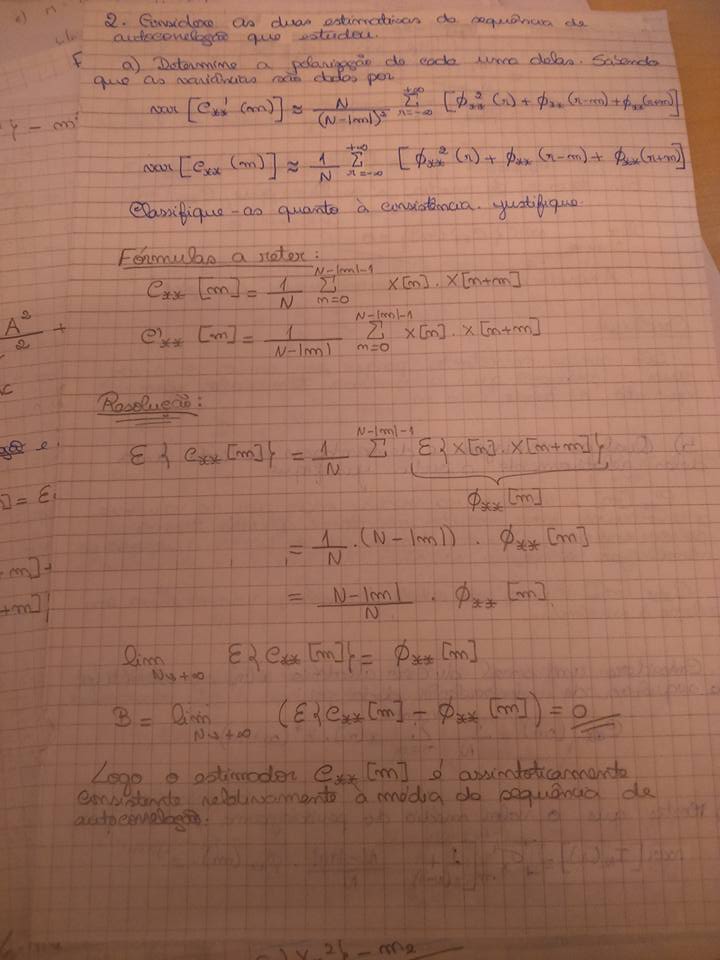 2. Considere as duas estimativas da sequência de
autocorrelação que estudou.
F a) Determine a polarização de cada uma delas. Sabendo
que as variâncias são dadas por
var [C**' (m)] ≈ N/(N-|m|)² +∞ Σ r=-∞ [ϕ**²(r) + ϕ**(r-m) + ϕ**(r+m)]
var [C** (m)] ≈ 1/N +∞ Σ r=-∞ [ϕ**²(r) + ϕ**(r-m) + ϕ**(r+m)]
Classifique-as quanto à consistência. Justifique.
Fórmulas a reter:
C** [m] = 1/N N-|m|-1 Σ m=0 X[n] . X[n+m]
C'** [m] = 1/N-|m| N-|m|-1 Σ m=0 X[n] . X[n+m]
Resolução:
E { C** [m]} = 1/N N-|m|-1 Σ E{X[n] . X[n+m]}
ϕ** [m]
= 1/N . (N-|m|) . ϕ** [m]
= N-|m|/N . ϕ** [m]
lim N→+∞ E{C** [m]} = ϕ** [m]
B = lim N→+∞ (E{C**[m] - ϕ** [m]) = 0
Logo o estimador C** [m] é assintoticamente
consistente relativamente à média da sequência de
autocorrelação.
} - m
A²/2 +
c
e.
] = E,
m] -
+m]
X²} - m2